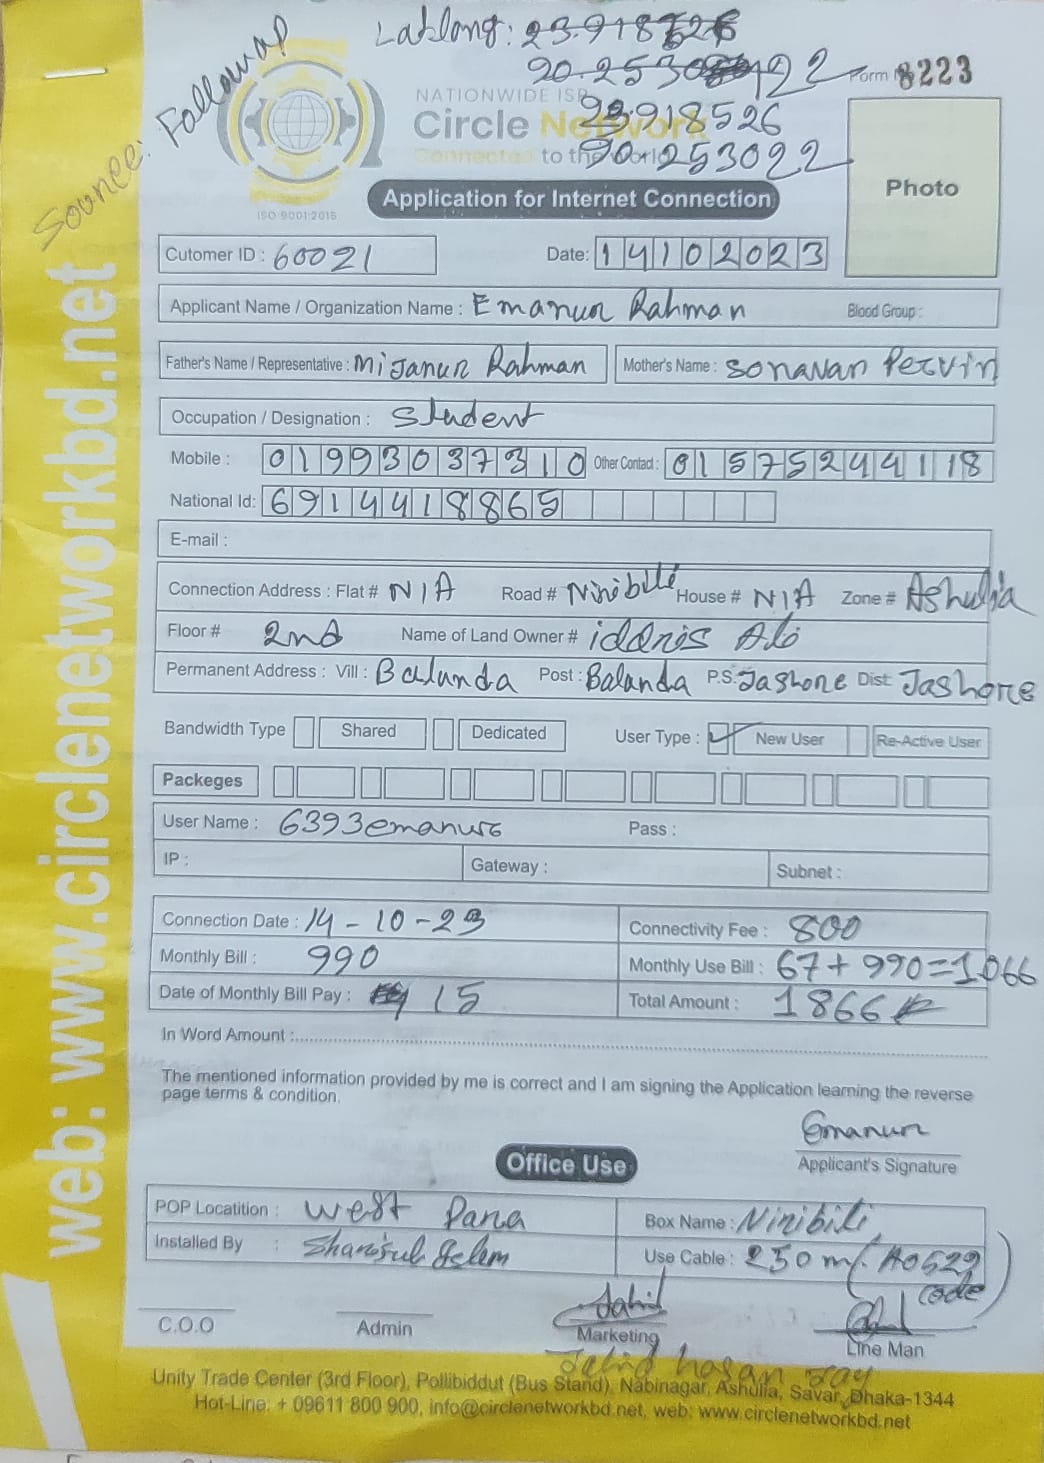 Latlong: 23.918526
90.253022
Source: Followap
Form 8223
NATIONWIDE ISP
23.918526
Circle Network
90.253022
Connected to the World
ISO 9001:2015
Application for Internet Connection
Photo
Cutomer ID : 60021 Date: 14102023
Applicant Name / Organization Name : Emanur Rahman Blood Group :
Father's Name / Representative : Mijanur Rahman Mother's Name : Sonavan Pervin
Occupation / Designation : Student
Mobile : 01993037310 Other Contact : 01575244118
National Id: 6914418865
E-mail :
Connection Address : Flat # N/A Road # Niribili House # N/A Zone # Ashulia
Floor # 2nd Name of Land Owner # iddris Ali
Permanent Address : Vill : Balunda Post : Balanda P.S. Jashore Dist Jashore
Bandwidth Type Shared Dedicated User Type : ✓ New User Re-Active User
Packeges
User Name : 6393emanur Pass :
IP : Gateway : Subnet :
Connection Date : 14-10-23 Connectivity Fee : 800
Monthly Bill : 990 Monthly Use Bill : 67+990=1066
Date of Monthly Bill Pay : 15 Total Amount : 1866
In Word Amount :
The mentioned information provided by me is correct and I am signing the Application learning the reverse
page terms & condition.
Emanur
Applicant's Signature
Office Use
POP Locatition : west Para Box Name : Niribili
Installed By : Sharisul Islam Use Cable : 250 m/ (A0529
code)
Jahid
C.O.O Admin Marketing Line Man
Jahid hasan Jay
Unity Trade Center (3rd Floor), Pollibiddut (Bus Stand), Nabinagar, Ashulia, Savar, Dhaka-1344
Hot-Line: + 09611 800 900, info@circlenetworkbd.net, web: www.circlenetworkbd.net
web: www.circlenetworkbd.net